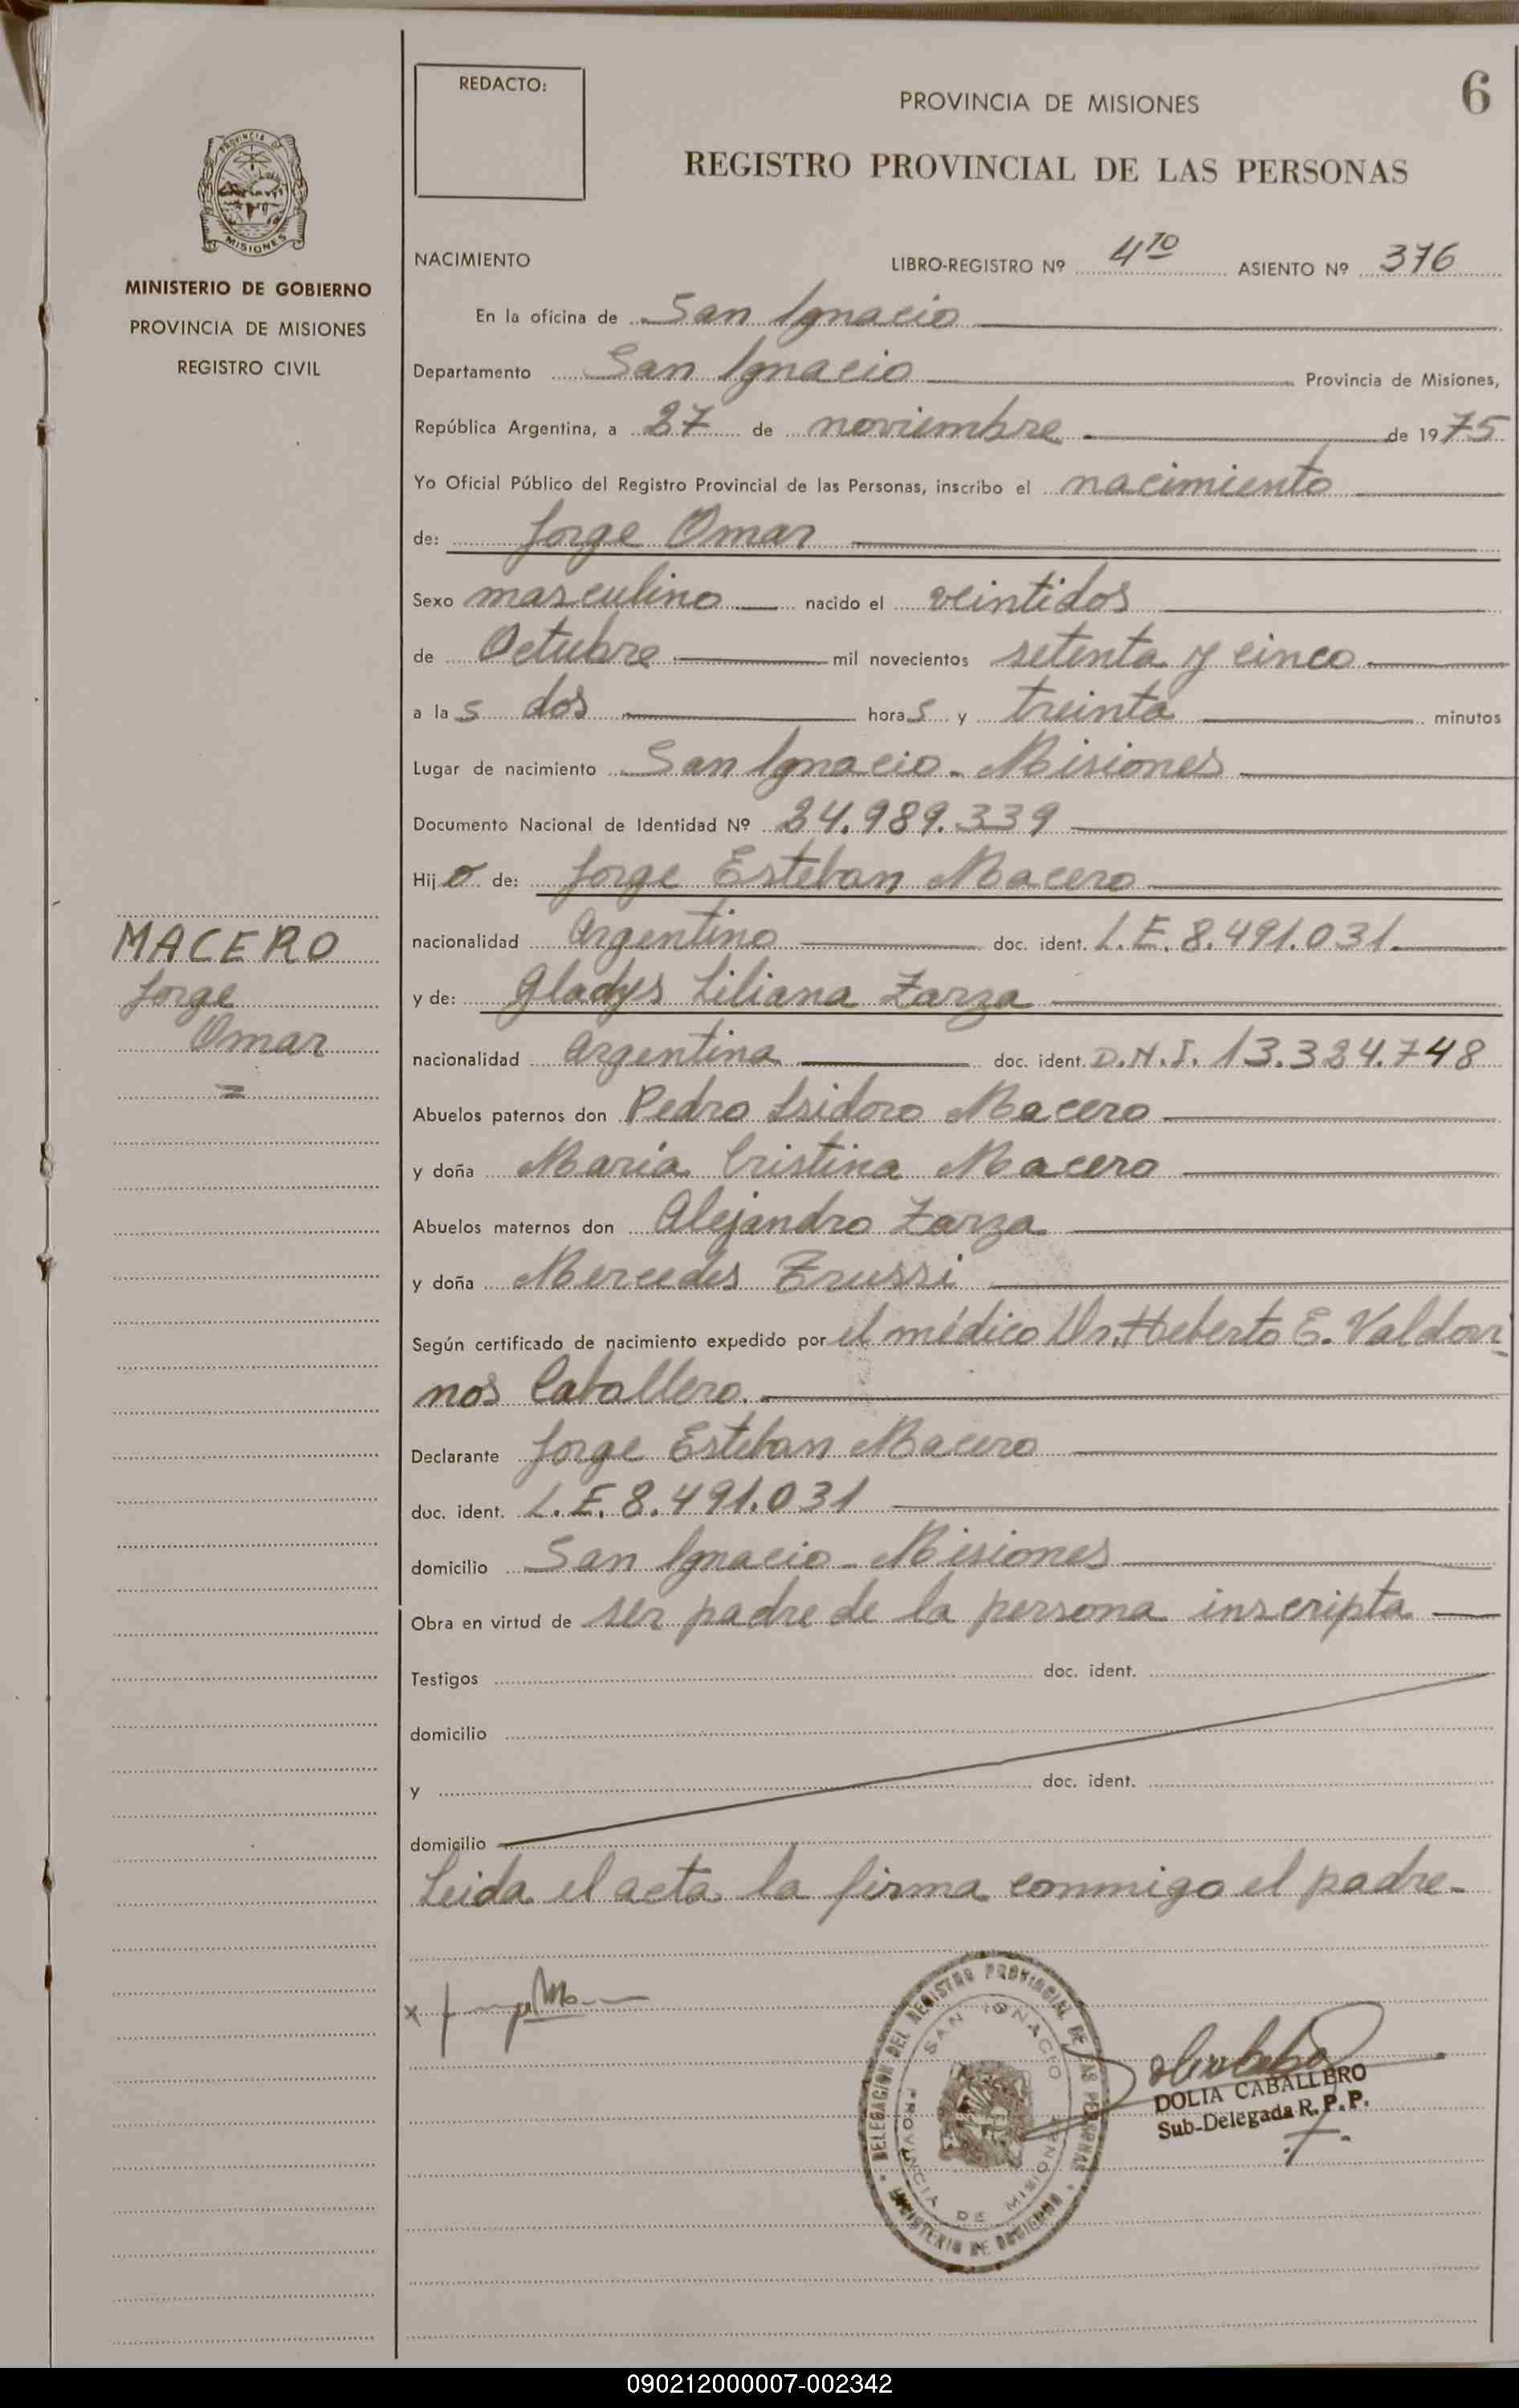 6
REDACTO:
PROVINCIA DE MISIONES
REGISTRO PROVINCIAL DE LAS PERSONAS
PROVINCIA DE
MISIONES
MINISTERIO DE GOBIERNO
PROVINCIA DE MISIONES
REGISTRO CIVIL
NACIMIENTO LIBRO-REGISTRO Nº 4to ASIENTO Nº 376
En la oficina de San Ignacio
Departamento San Ignacio Provincia de Misiones,
República Argentina, a 27 de noviembre de 1975
Yo Oficial Público del Registro Provincial de las Personas, inscribo el nacimiento
de: Jorge Omar
Sexo masculino nacido el veintidos
de Octubre mil novecientos setenta y cinco
a las dos horas y treinta minutos
Lugar de nacimiento San Ignacio - Misiones
Documento Nacional de Identidad Nº 24.989.339
Hijo de: Jorge Esteban Macero
nacionalidad Argentino doc. ident. L.E. 8.491.031
y de: Gladys Liliana Zarza
nacionalidad Argentina doc. ident. D.N.I. 13.324.748
Abuelos paternos don Pedro Isidoro Macero
y doña María Cristina Macero
Abuelos maternos don Alejandro Zarza
y doña Mercedes
Según certificado de nacimiento expedido por el médico Dr. Heberto E. Valdovi
nos Caballero.
Declarante Jorge Esteban Macero
doc. ident. L.E. 8.491.031
domicilio San Ignacio - Misiones
Obra en virtud de ser padre de la persona inscripta
Testigos doc. ident.
domicilio
y doc. ident.
domicilio
Leida el acta la firma conmigo el padre-
MACERO
Jorge
Omar
=
x
DELEGACION DEL REGISTRO PROVINCIAL DE LAS PERSONAS
SAN IGNACIO
PROVINCIA DE MISIONES
MINISTERIO DE GOBIERNO
DOLIA CABALLERO
Sub-Delegada R. P. P.
090212000007-002342